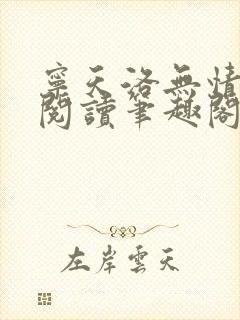 寧天洛無情
閱讀筆趣閣
左岸雲天